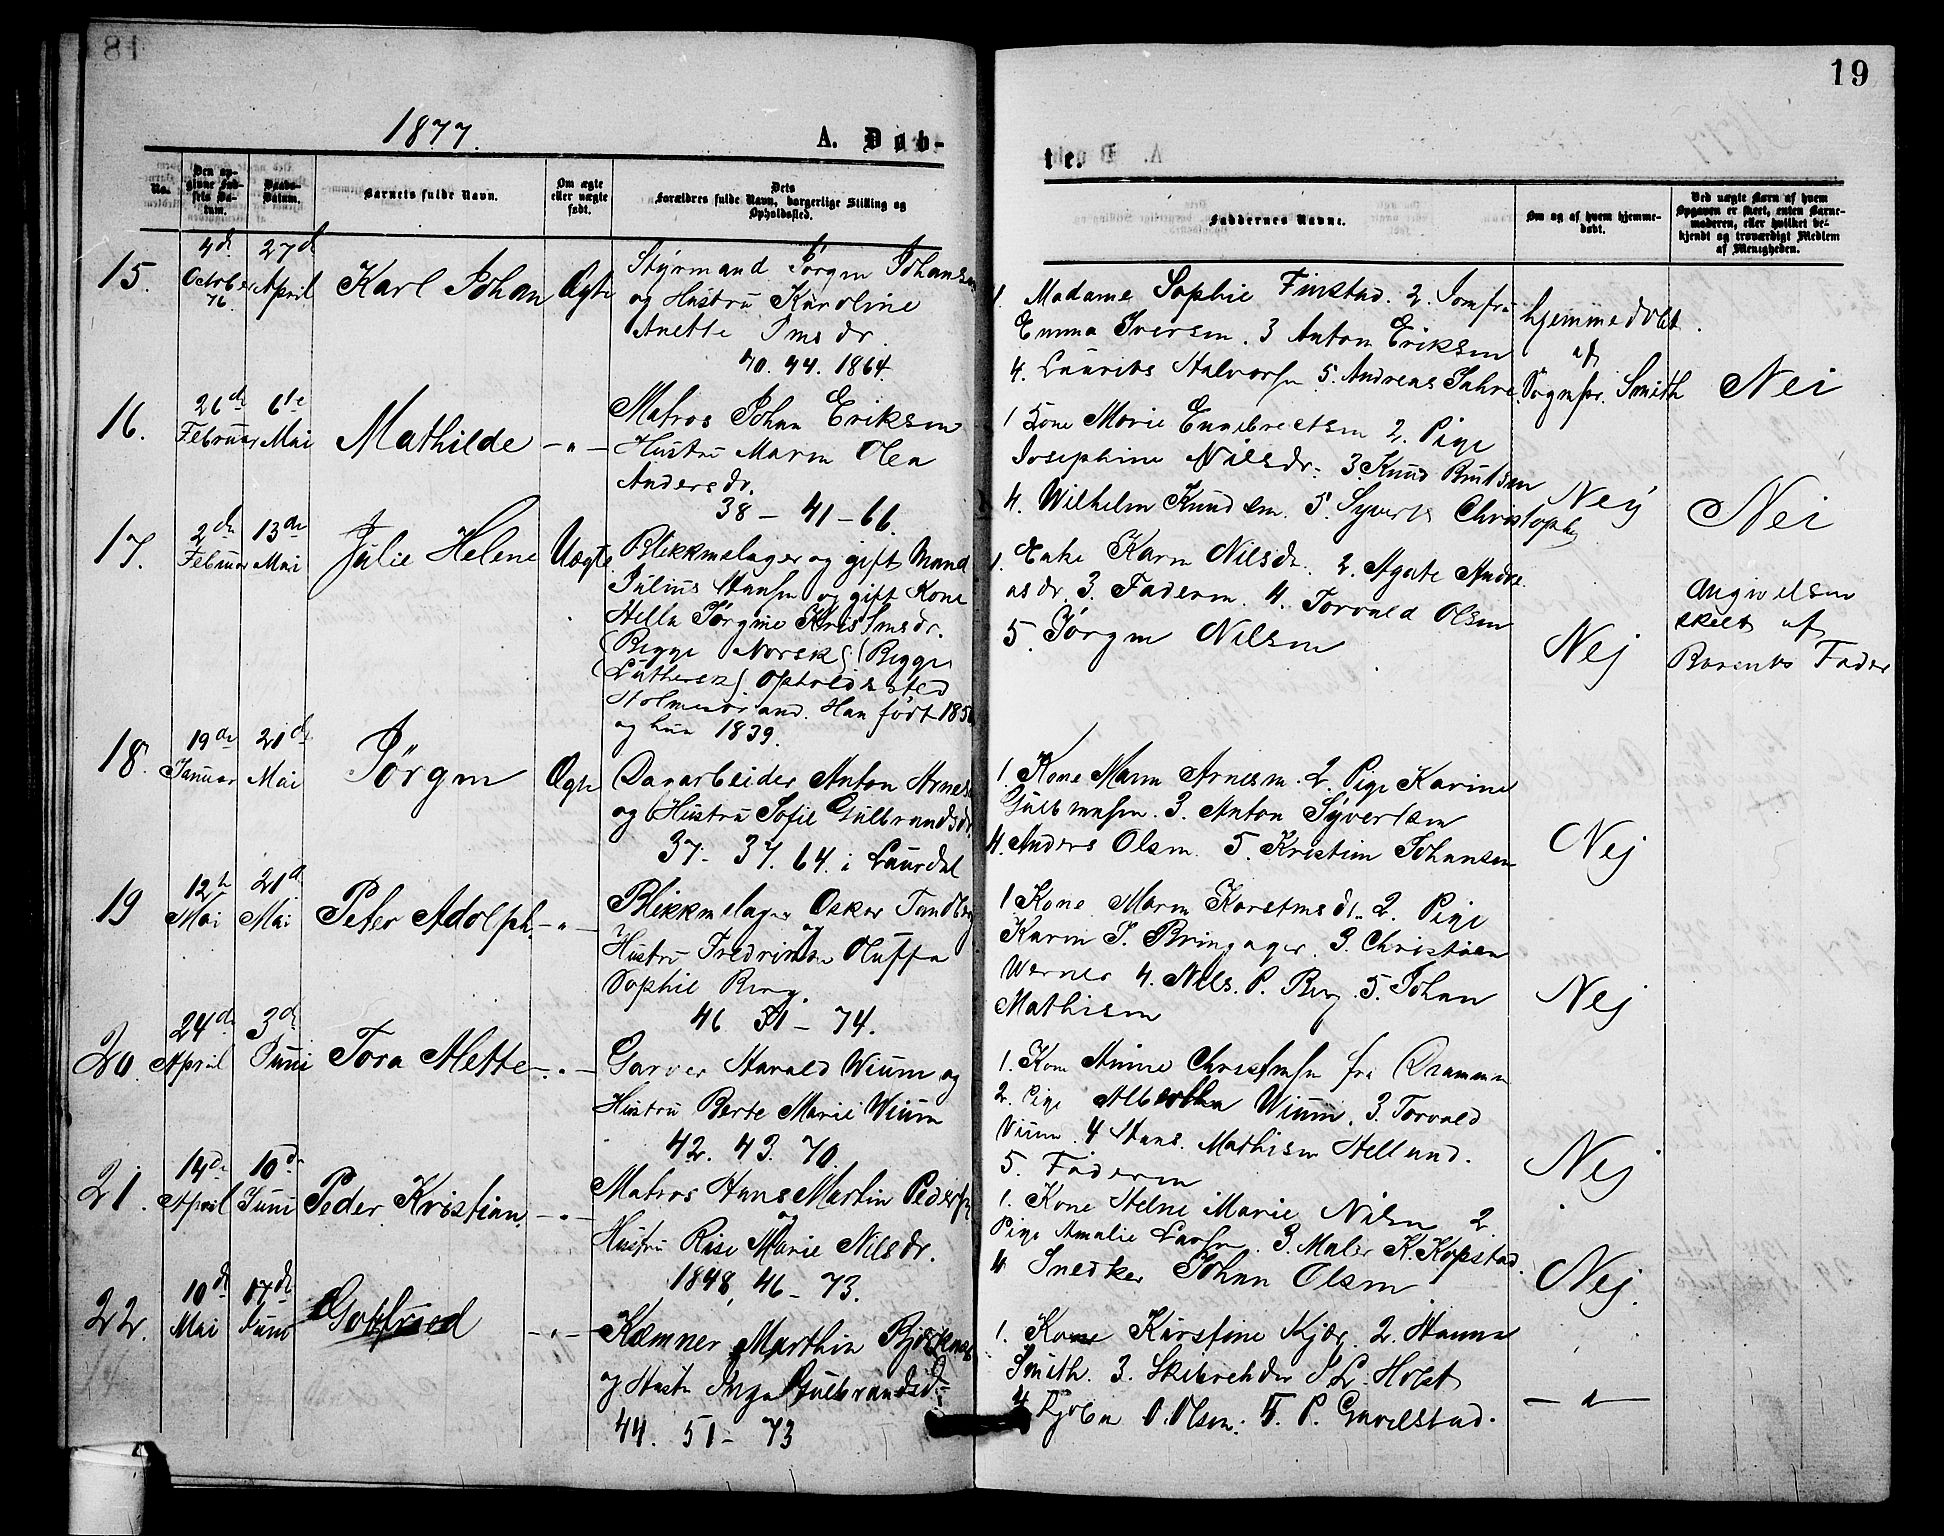 81
1877.
A. Døb-
No.
Den op-
givne Fød-
sels Da-
tum.
Daabs-
Datum.
Barnets fulde Navn.
Om ægte
eller uægte
født.
Dets
Forældres fulde Navn, borgerlige Stilling og
Opholdssted.
15.
4de
October
76.
27de
April
Karl Johan
Ægte
Styrmand Jørgen Johansen
og Hustru Karoline
Anette Jensdr.
40. 44. 1864.
16.
26de
Februar
6te
Mai
Mathilde
— " —
Matros Johan Eriksen
Hustru Maren Olea
Andersdr.
38 — 41 — 66.
17.
2den
Februar
13de
Mai
Julie Helene
Uægte
Blikkenslager og gift Mand
Julius Hansen og gift Kone
Helle Jørgine Kristensdr.
(Begge Norsk) (Begge
Lúthersk). Opholdssted
Holmestrand. Han født 1850
og hun 1839.
18.
19de
Januar
21de
Mai
Jørgen
Ægte
Dagarbeider Anton Arnesen
og Hustru Sofie Gulbrandsdr
37 - 37. 64. i Laurdal
19
12te
Mai
21de
Mai
Peter Adolph.
— " —
Blikkenslager Oskar Tandberg
og
Hustru Fredrikke Oluffa
Sophie Berg.
46 51 — 74.
20.
24de
April
3de
Juni
Tora Alette
— " —
Garver Harald Wium og
Hustru Berte Marie Wium
42. 43. 70.
21.
14de
April
10de
Juni
Peder Kristian
— " —
Matros Hans Martin Pedersen
og
Hustru Rise Marie Nilsdr.
1848, 46 — 73.
22.
10de
Mai
17de
Juni
Gotfried
— " —
Kæmner Marthin Bjerknes
og Hustr Inga Gulbrandsdr
44. 51 — 73
19
te.
Faddernes Navne.
Om og af hvem hjemme-
døbt.
Ved uægte Børn af hvem
Opgaven er skeet, enten Barne-
moderen, eller hvilket be-
kjendt og troværdigt Medlem
af Menigheden.
1. Madame Sophie Finstad. 2. Jomfru
Emma Iversen. 3 Anton Eriksen
4. Laurits Halvorsen 5. Andreas Sahre.
hjemmedøbt
af
Sognpr. Smith
Nei
1 Kone Marie Engebretsen 2. Pige
Josephine Nilsdr. 3. Knud Bentsen
4. Wilhelm Knudsen. 5. Syvert Christoph
Nej
Nei
1. Enke Karen Nilsdr. 2. Agate Andre
asdr. 3. Faderen. 4. Torvald Olsen
5. Jørgen Nilsen
Nej
Angivelsen
skeet af
Barnets Fader
1. Kone Maren Arnesen. 2. Pige Karine
Gulbransen. 3. Anton Syvertsen
4. Anders Olsen. 5. Kristian Johansen
Nej
1 Kone Maren Karstensdr. 2. Pige
Karen J. Bringager. 3. Christian
Werner 4. Nils. P. Berg. 5. Johan
Mathisen
Nej
1. Kone Anne Christensen fra Drammen
2. Pige Albertha Wium. 3. Torvald
Wium. 4 Hans Mathisen Hellund.
5. Faderen
Nej
1. Kone Helene Marie Nilsen 2
Pige Amalie Larsen. 3. Maler K. Kopstad.
4 Snedker Johan Olsen
Nej.
1. Kone Kirstine Kjær. 2. Hanna
Smith. 3. Skibsreder J L. Holst
4 Kjøbm O. Olsen. 5. P. Gravelstad.
— " —